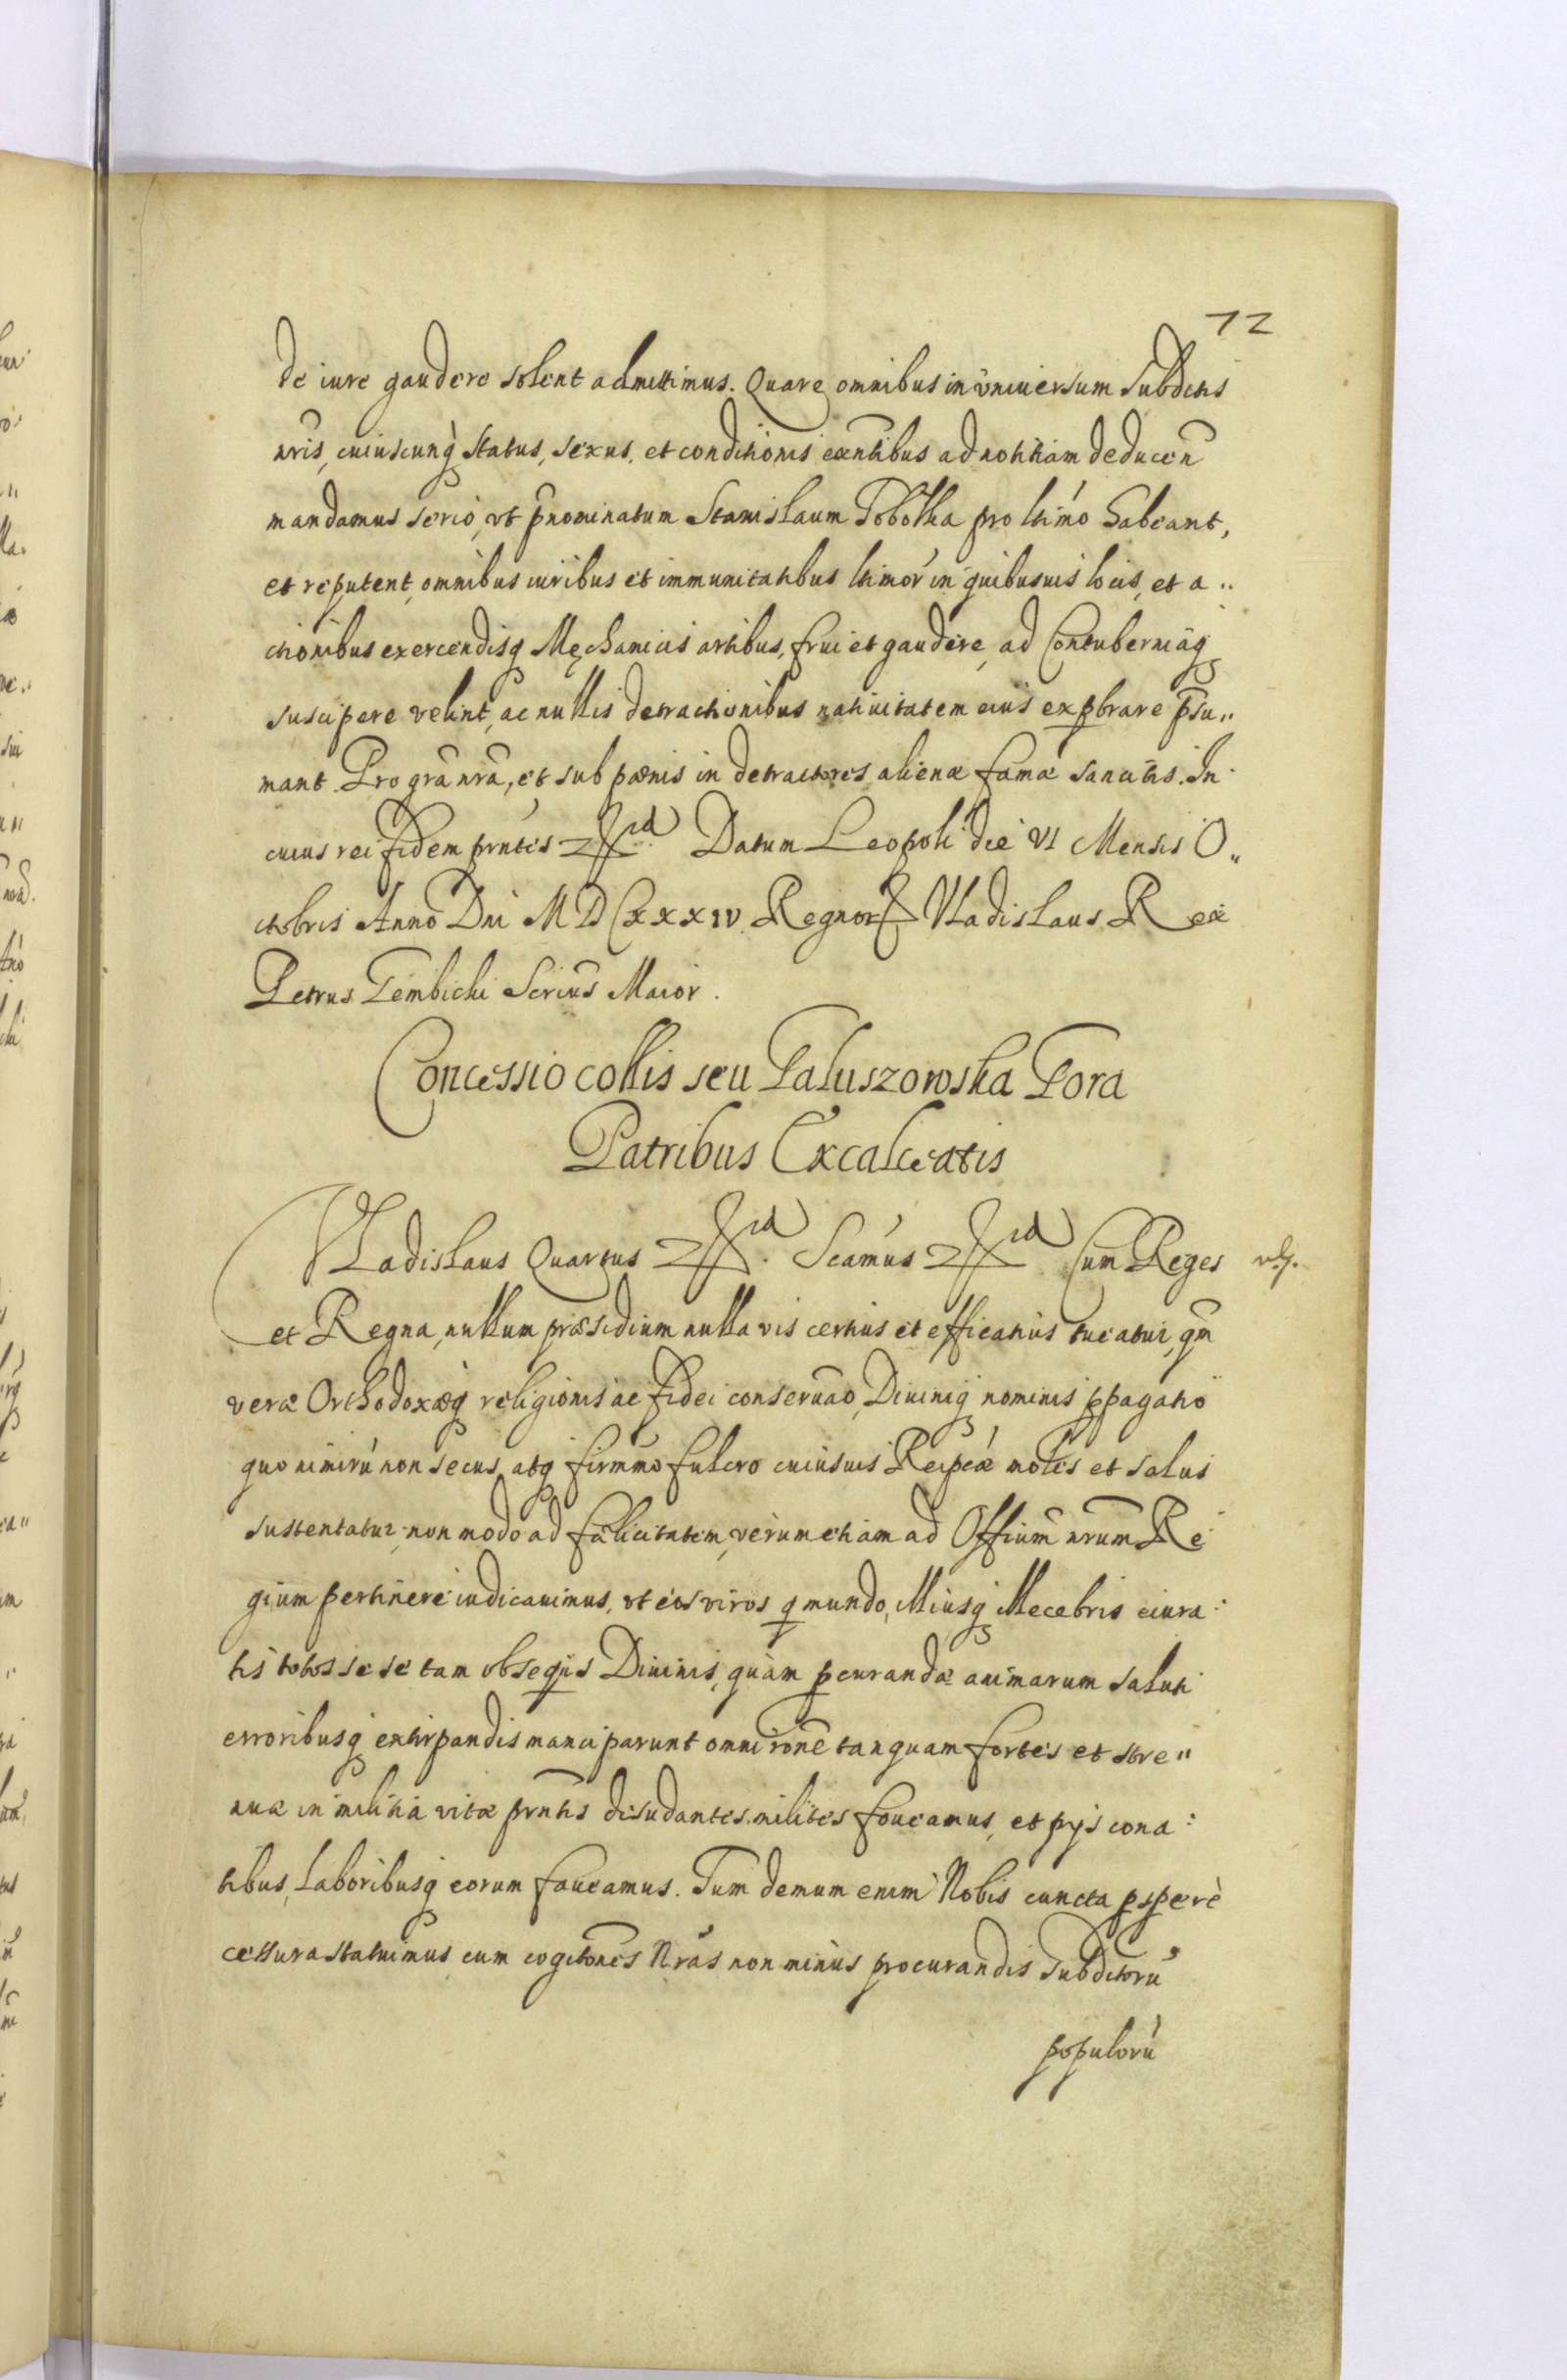 12
de iure gaudere solent admittimus. Quare omnibus in vniuersum subditis
nris, cuiuscunq status, sexus, et conditionis exntibus ad notitiam deducen
mandamus serio, vt pnominatum Stanislaum Tobolka pro ltimo habeant,
et reputent, omnibus iuribus et immunitatibus ltimor in quibusuis locis, et a„
ctionibus exercendisq Mechanicis artibus, frui et gaudere, ad Contuberniaq
suscipere velint, ac nullis detractionibus natiuitatem eius exprobrare psu„
mant. Pro gra nra, et sub pænis in detractores alienæ famæ sancitis. In
cuius rei fidem prntes Datum Leopoli die VI Mensis O„
ctobris Anno Dni MDCXXXIV. Regnor Vladislaus Rex
Petrus Gembicki Scrius Maior.
Concessio collis seu Galuszowska Gora
Patribus Excalceatis
Vladislaus Quartus Scamus Cum Reges
et Regna, nullum præsidium nulla vis certius et efficatius tueatur, qm
veræ Orthodoxæq religionis ac fidei conseruao, Diuiniq nominis ppagatio
quo nimirù non secus, atq firmmo fulcro cuiusuis Reipcæ moles et salus
sustentatur, non modo ad fælicitatem, verum etiam ad Offium nrum Re
gium pertinere iudicauimus, vt eos viros q mundo, illiusq illecebris eiura:
tis totos sese tam obsequis Diuinis, quàm pcurandæ animarum saluti
erroribusq extirpandis manciparunt omni rone tanquam fortes et stre„
nuæ in militia vitæ prntis desudantes milites foueamus, et pijs cona:
tibus, laboribusq eorum faueamus. Tum demum enim Nobis cuncta pspere
cessura statuimus cum cogitones Nras non minùs procurandis subditorù
populorù